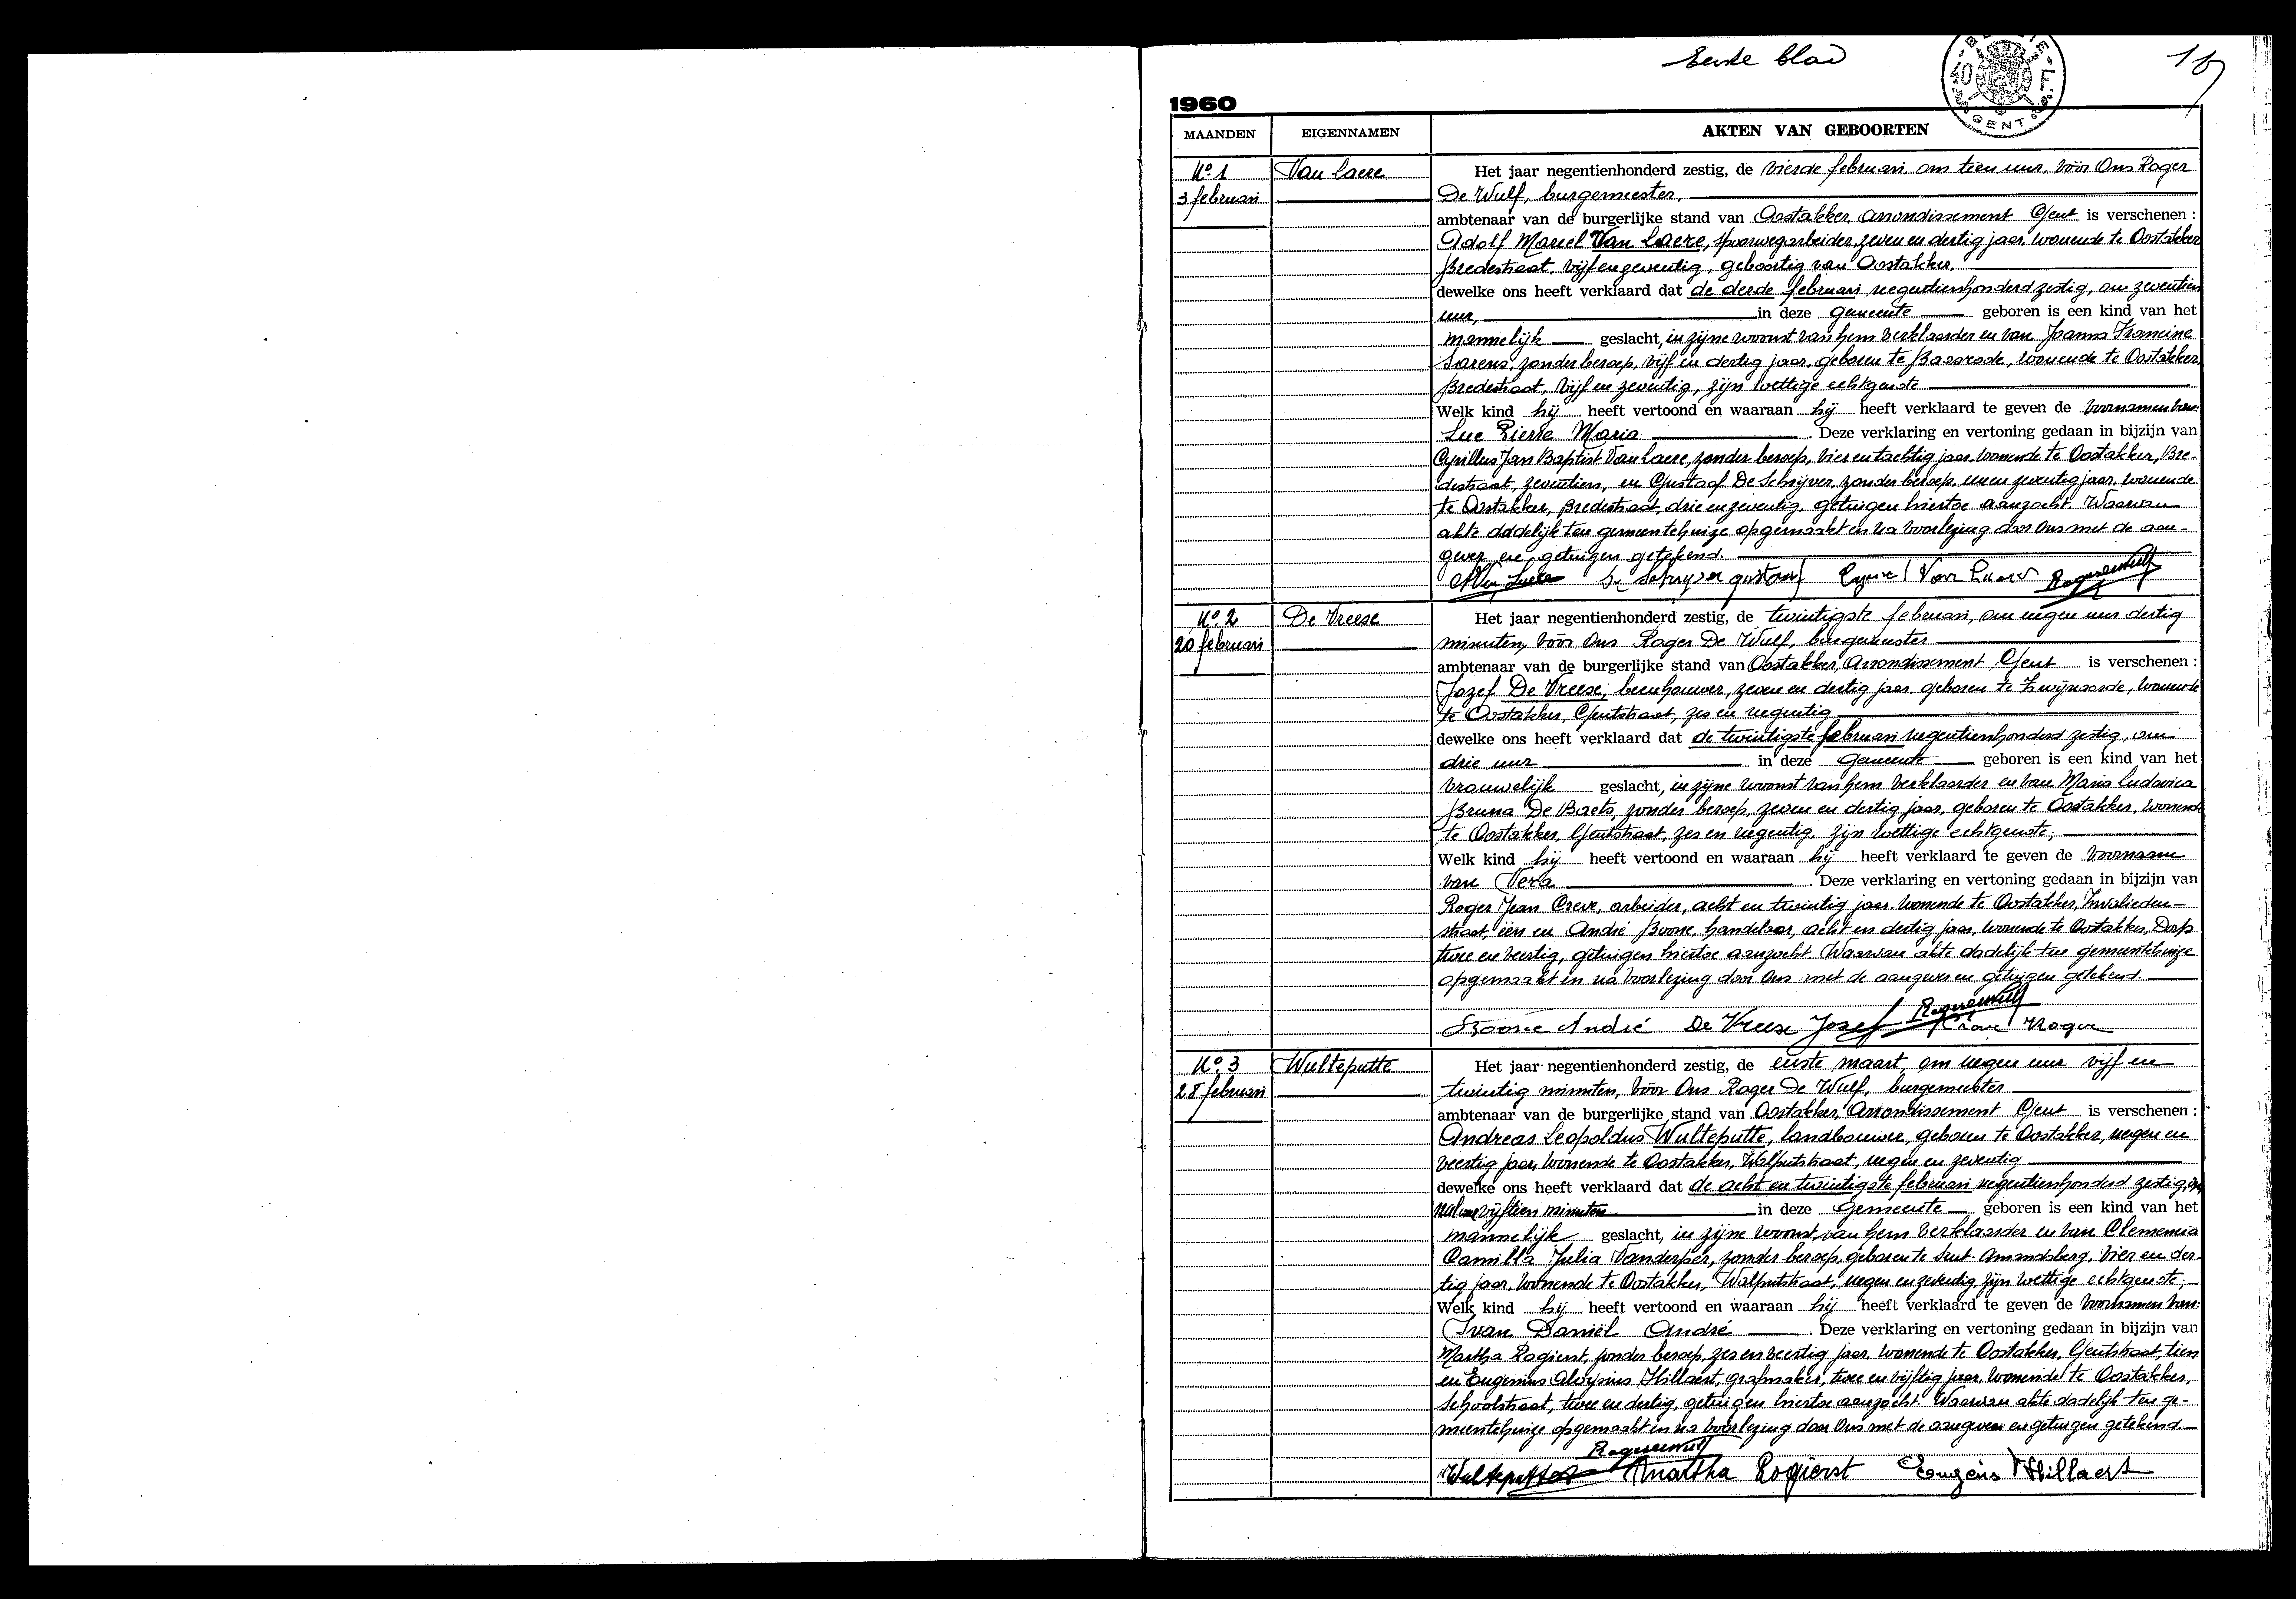 Eerste blad
1
40 F
GENT
1960
MAANDEN EIGENNAMEN AKTEN VAN GEBOORTEN
N° 1 Van Laere Het jaar negentienhonderd zestig, de vierde februari, om tien uur, vóór Ons Roger
3 februari De Wulf, burgemeester,
ambtenaar van de burgerlijke stand van Oostakker, arrondissement Gent is verschenen :
Adolf Marcel Van Laere, spoorwegarbeider, zeven en dertig jaar, wonende te Oostakker
Bredestraat, vijf en zeventig, geboortig van Oostakker,
dewelke ons heeft verklaard dat de derde februari negentienhonderd zestig, om zeventien
uur, in deze gemeente geboren is een kind van het
mannelijk geslacht, in zijne woonst van hem verklaarder en van Joanna Francine
Sarens, zonder beroep, vijf en dertig jaar, geboren te Baasrode, wonende te Oostakker,
Bredestraat, vijf en zeventig, zijn wettige echtgenote
Welk kind hij heeft vertoond en waaraan hij heeft verklaard te geven de voornamen van:
Luc Pierre Maria . Deze verklaring en vertoning gedaan in bijzijn van
Cyrillus Jan Baptist Van Laere, zonder beroep, vier en tachtig jaar, wonende te Oostakker, Bre-
destraat, zeventien, en Gustaaf De Schrijver, zonder beroep, een en zeventig jaar, wonende
te Oostakker, Bredestraat, drie en zeventig, getuigen hiertoe aanzocht. Waarvan
akte dadelijk ten gemeentehuize opgemaakt en na voorlezing door Ons met de aan-
gever en getuigen getekend.
A Van Laere De Schryver gustaaf Cyriel Van Laere Roger De Wulf
N° 2 De Vreese Het jaar negentienhonderd zestig, de twintigste februari, om negen uur dertig
20 februari minuten, vóór Ons Roger De Wulf, burgemeester
ambtenaar van de burgerlijke stand van Oostakker, arrondissement Gent is verschenen :
Jozef De Vreese, beenhouwer, zeven en dertig jaar, geboren te Zwijnaarde, wonende
te Oostakker, Gentstraat, zes en negentig
dewelke ons heeft verklaard dat de twintigste februari negentienhonderd zestig, om
drie uur in deze gemeente geboren is een kind van het
vrouwelijk geslacht, in zijne woonst van hem verklaarder en van Maria Ludovica
Bruna De Baets, zonder beroep, zeven en dertig jaar, geboren te Oostakker, wonende
te Oostakker, Gentstraat, zes en negentig, zijn wettige echtgenote;
Welk kind hij heeft vertoond en waaraan hij heeft verklaard te geven de voornaam
van Vera . Deze verklaring en vertoning gedaan in bijzijn van
Roger Jean Creve, arbeider, acht en twintig jaar, wonende te Oostakker, Invalieden-
straat, één en André Boone, handelaar, acht en dertig jaar, wonende te Oostakker, Dorp
twee en veertig, getuigen hiertoe aanzocht. Waarvan akte dadelijk ten gemeentehuize
opgemaakt en na voorlezing door Ons met de aangever en getuigen getekend.
Boone André De Vreese Jozef Roger De Wulf Creve Roger
N° 3 Wulteputte Het jaar negentienhonderd zestig, de eerste maart, om negen uur vijf en
28 februari twintig minuten, vóór Ons Roger De Wulf, burgemeester
ambtenaar van de burgerlijke stand van Oostakker, arrondissement Gent is verschenen :
Andreas Leopoldus Wulteputte, landbouwer, geboren te Oostakker, negen en
veertig jaar, wonende te Oostakker, Walputstraat, negen en zeventig
dewelke ons heeft verklaard dat de acht en twintigste februari negentienhonderd zestig, om
nul uur vijftien minuten in deze gemeente geboren is een kind van het
mannelijk geslacht, in zijne woonst van hem verklaarder en van Clemencia
Camilla Julia Vanderper, zonder beroep, geboren te Sint-Amandsberg, vier en der-
tig jaar, wonende te Oostakker, Walputstraat, negen en zeventig, zijn wettige echtgenote;
Welk kind hij heeft vertoond en waaraan hij heeft verklaard te geven de voornamen van:
Ivan Daniël André . Deze verklaring en vertoning gedaan in bijzijn van
Martha Rogierst, zonder beroep, zes en veertig jaar, wonende te Oostakker, Gentstraat, tien
en Eugenius Aloysius Hillaert, grafmaker, twee en vijftig jaar, wonende te Oostakker,
Schoolstraat, twee en dertig, getuigen hiertoe aanzocht. Waarvan akte dadelijk ten ge-
meentehuize opgemaakt en na voorlezing door Ons met de aangever en getuigen getekend.
Roger De Wulf
Wulteputte Martha Rogierst Eugeen Hillaert